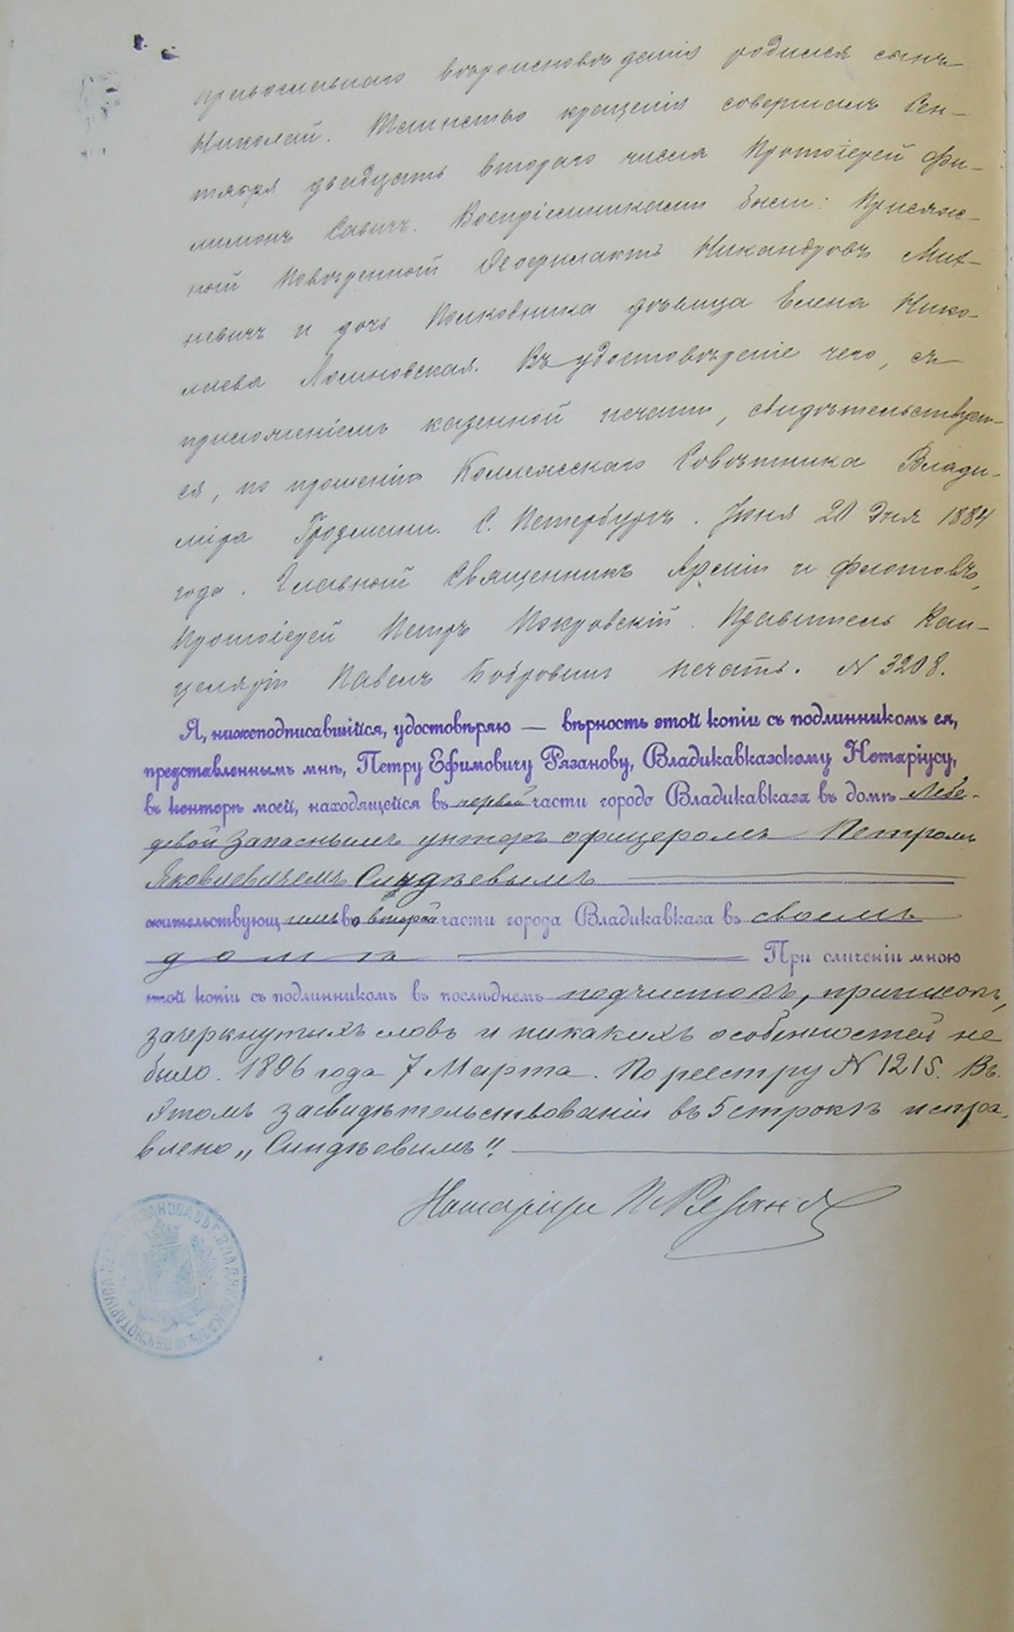 православнаго вѣроисповѣданія родился сынъ
Николай. Таинство крещенія совершалъ Сен-
тября двадцать втораго числа Протоіерей Фи-
лимонъ Савичъ. Воспріемниками были: Присяж-
ный Повѣренный Феофилактъ Никандровъ Мих-
невичъ и дочь Полковника дѣвица Елена Нико-
лаева Лосиновская. Въ удостовѣреніе чего, съ
приложеніемъ казенной печати, свидѣтельствует-
ся, по прошенію Коллежскаго Совѣтника Влади-
міра С. Петербургъ. Іюня 20 дня 1884
года. Главный Священникъ Арміи и Флотовъ,
Протоіерей Петръ Покровскій. Правитель Кан-
целяріи Павелъ Бобровъ Печать. N 3208.
Я, нижеподписавшійся, удостовѣряю — вѣрность этой копіи съ подлинникомъ ея,
представленнымъ мнѣ, Петру Ефимовичу Рязанову, Владикавказскому Нотаріусу,
въ конторѣ моей, находящейся въ первой части города Владикавказа въ домѣ Лебе-
девой Запаснымъ унтеръ офицеромъ Петромъ
Яковлевичемъ Синдѣевымъ
жительствующимъ во второй части города Владикавказа въ своемъ
домѣ При сличеніи мною
этой копіи съ подлинникомъ въ послѣднемъ подчистокъ, приписокъ,
зачеркнутыхъ словъ и никакихъ особенностей не
было. 1896 года 7 Марта. По реестру N 1215. Въ
этомъ засвидѣтельствованіи въ 5 строкѣ испра-
влено „Синдѣевымъ".
Нотаріусъ П. Рязановъ